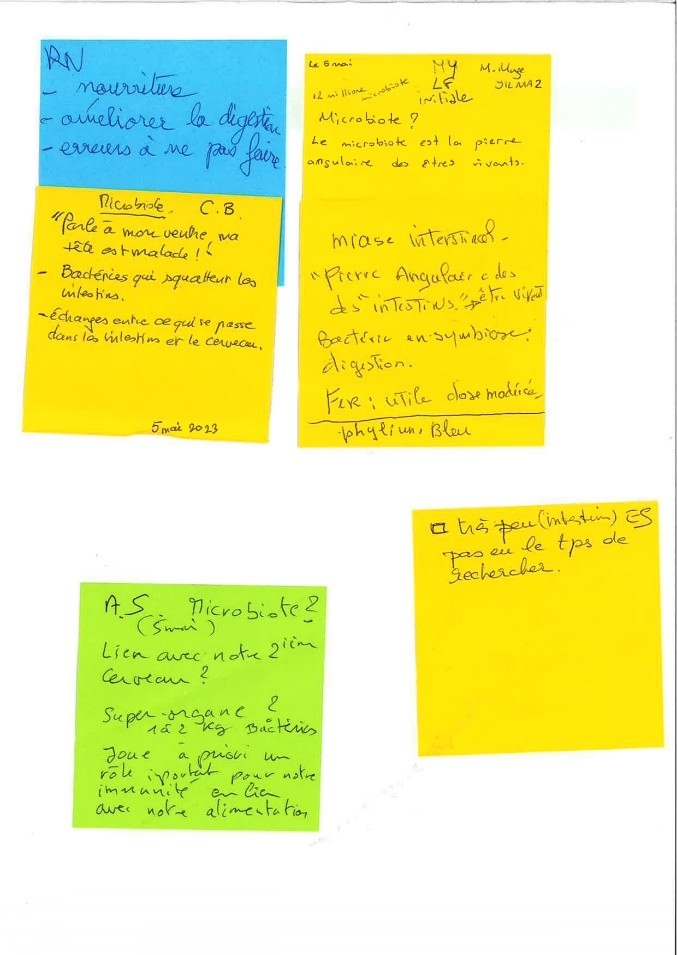 RN
- nourriture
- améliorer la digestion
- erreurs à ne pas faire
Microbiote. C.B.
"Parle à mon ventre, ma
tête est malade !"
- Bactéries qui squattent les
intestins.
- échanges entre ce qui se passe
dans les intestins et le cerveau.
5 mai 2023
Le 5 mai MY M. Muge
12 millions microbiote LF YILMAZ
initiale
Microbiote ?
Le microbiote est la pierre
angulaire des êtres vivants.
"Pierre Angulaire des
des "intestins." être vivant
Bactérie en symbiose:
digestion.
FER : utile dose modérée
Bleu
très peu (intestin) ES
pas eu le tps de
rechercher.
A.S. Microbiote ?
(5 mai)
Lien avec notre 2ième
cerveau ?
Super-organe ?
1 à 2 kg Bactéries
Joue à priori un
rôle important pour notre
immunité en lien
avec notre alimentation